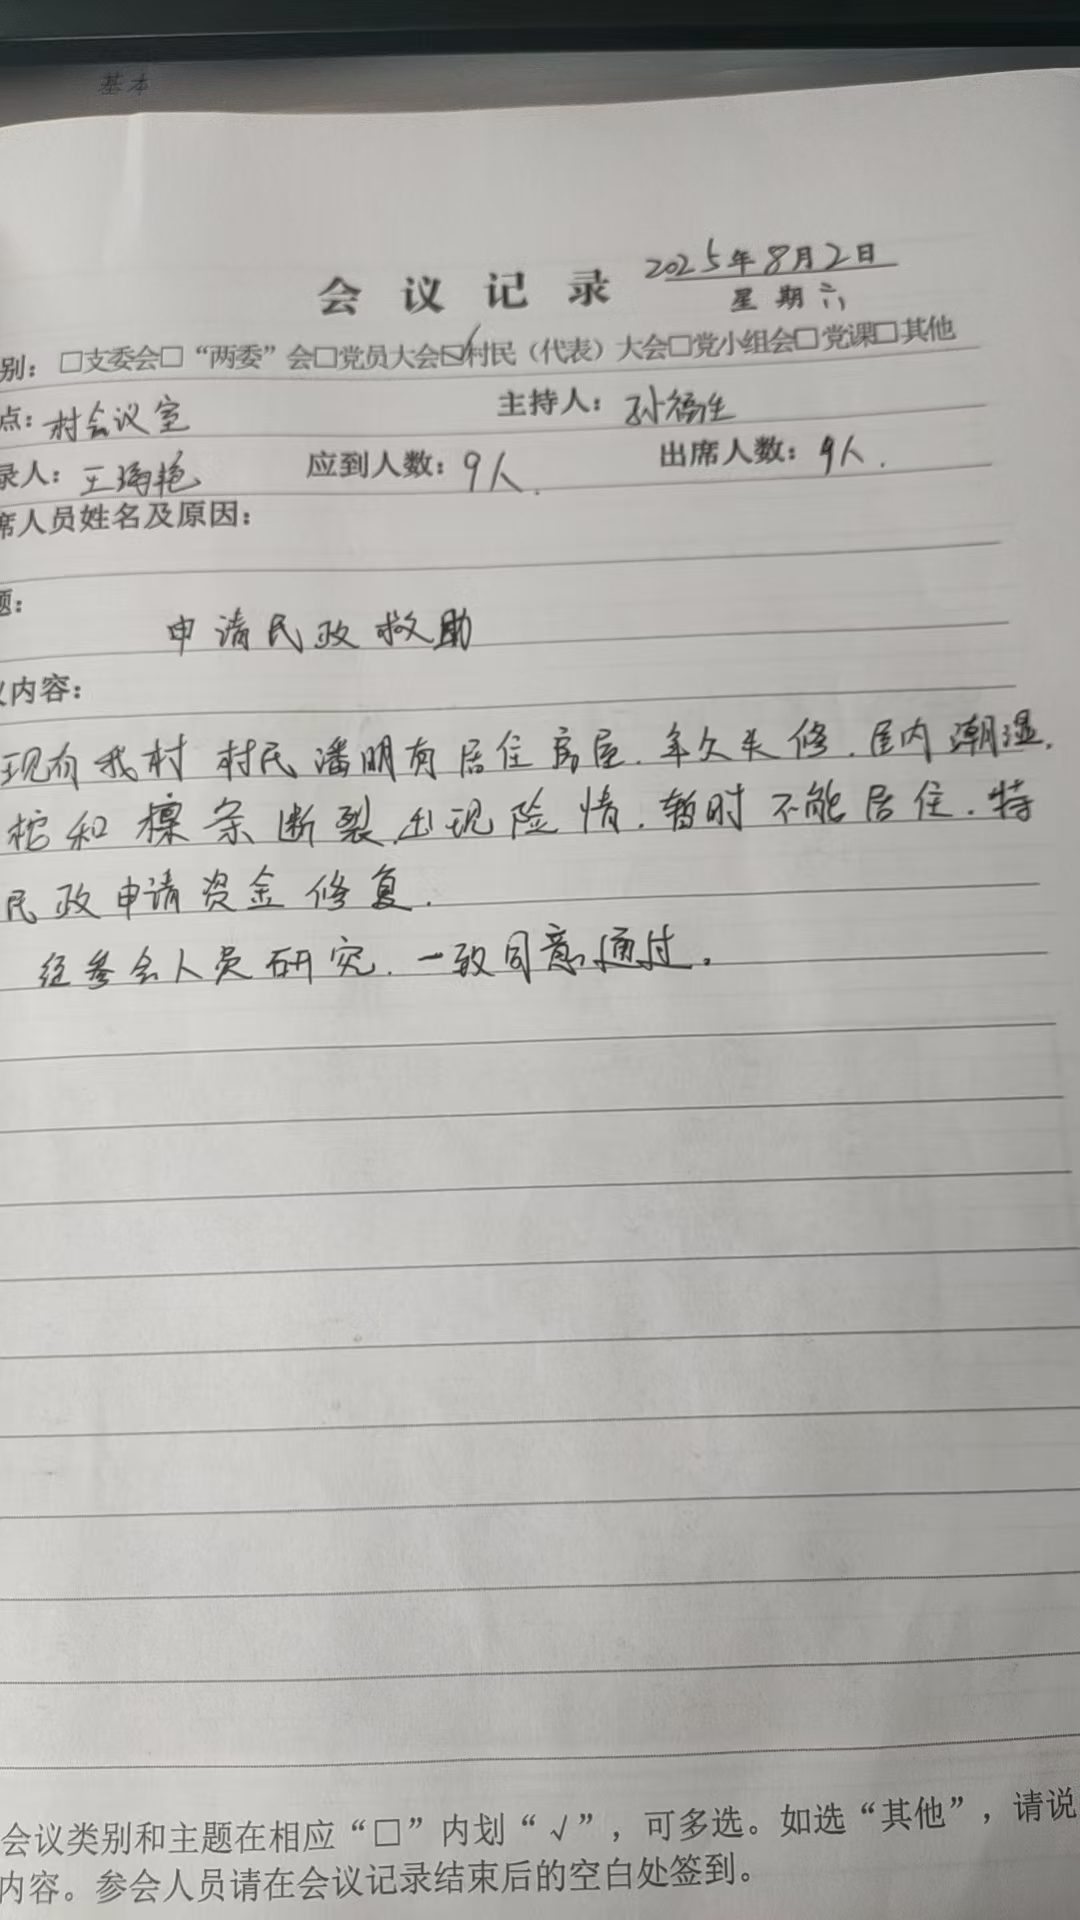 基本
会议记录 2025年8月2日
星期六
别：□支委会□“两委”会□党员大会☑村民（代表）大会□党小组会□党课□其他
点：村会议室 主持人：孙福生
录人：王海艳 应到人数：9人. 出席人数：9人.
席人员姓名及原因：
题：
申请民政救助
议内容：
现有我村村民潘明有居住房屋.年久失修.屋内潮湿.
棺和檩条断裂.出现险情.暂时不能居住.特
民政申请资金修复.
经参会人员研究.一致同意通过。
会议类别和主题在相应“□”内划“√”，可多选。如选“其他”，请说
内容。参会人员请在会议记录结束后的空白处签到。